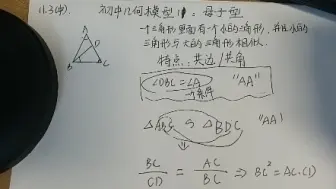 11.3(中) 初中几何模型11：母子型
一个三角形里面有一个小的三角形，并且小的
三角形与大的三角形相似
特点：共边/共角
A
D
B
C
∠DBC=∠A "AA"
条件
△ABC ∽ △BDC "AA"
BC/CD = AC/BC ⇒ BC²=AC·CD